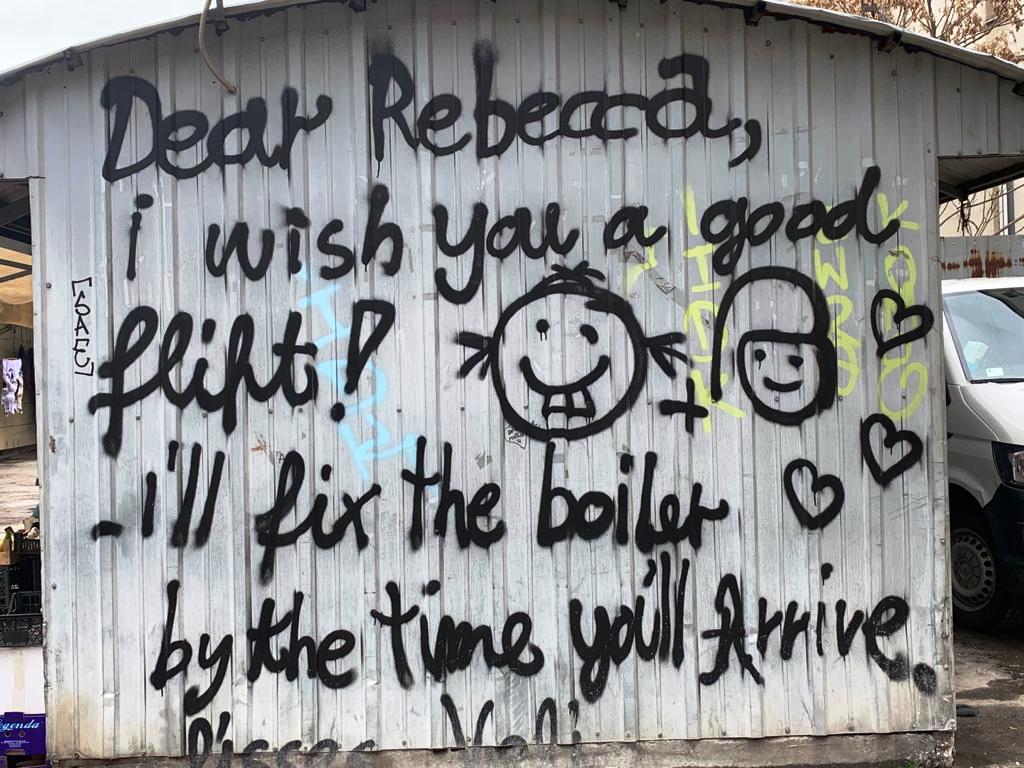 Dear Rebecca,
i wish you a good
fliht!
-i'll fix the boiler
by the time you'll Arrive.
[SAE]
genda